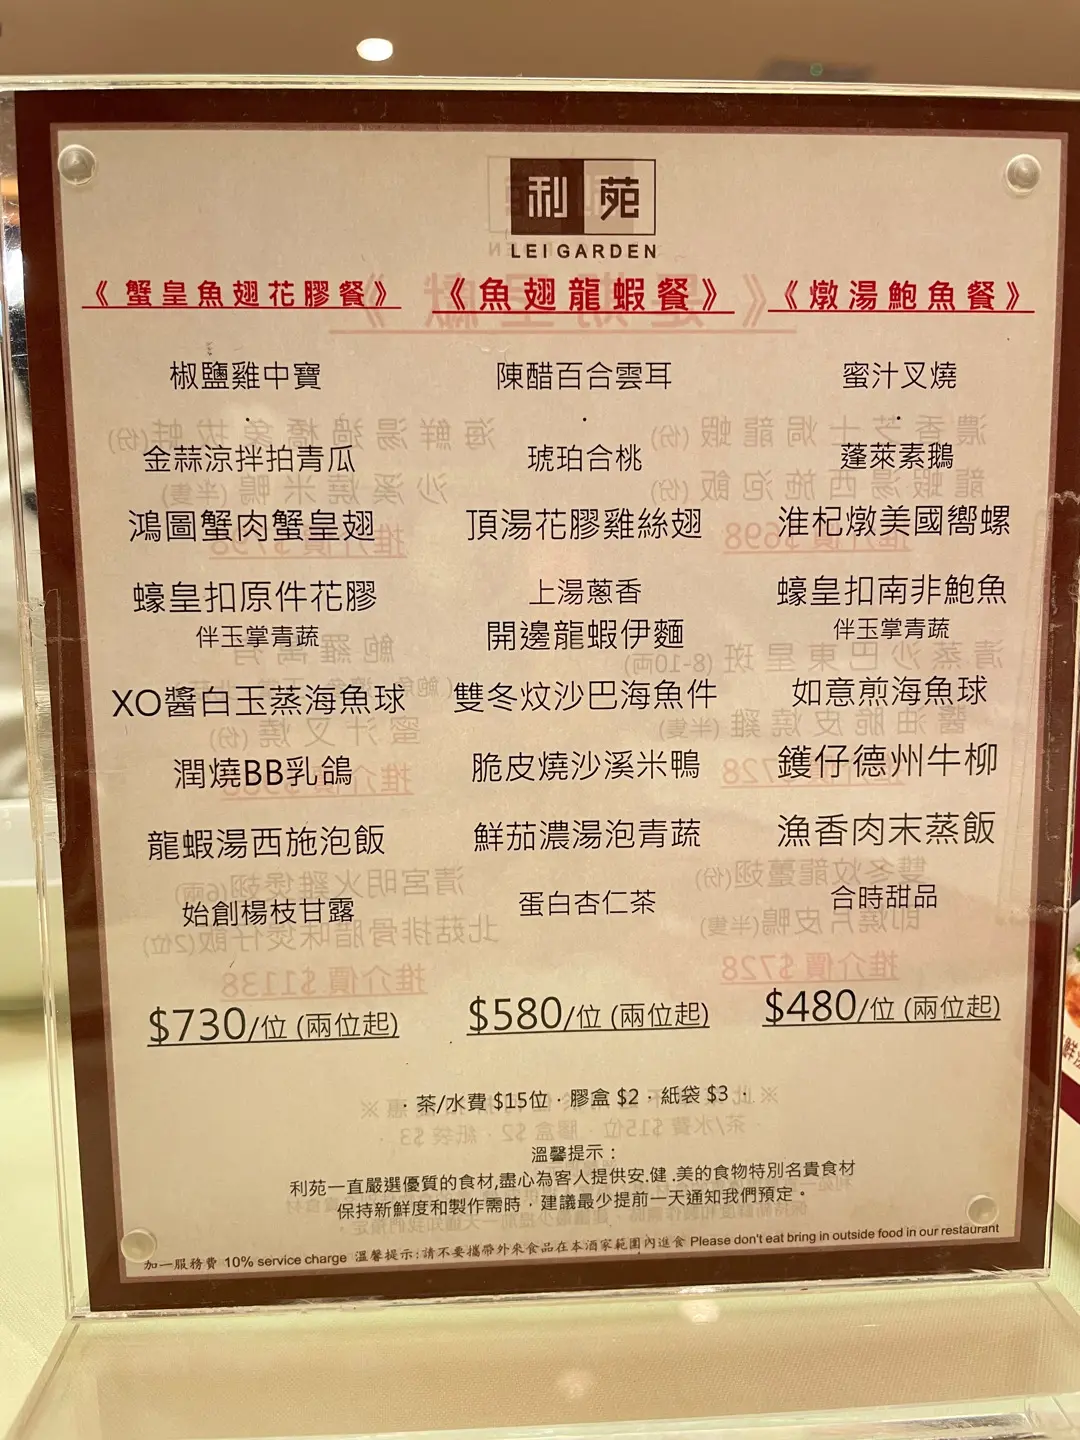 利苑
LEI GARDEN
《蟹皇魚翅花膠餐》
椒鹽雞中寶
·
金蒜涼拌拍青瓜
鴻圖蟹肉蟹皇翅
蠔皇扣原件花膠
伴玉掌青蔬
XO醬白玉蒸海魚球
潤燒BB乳鴿
龍蝦湯西施泡飯
始創楊枝甘露
$730/位 (兩位起)
《魚翅龍蝦餐》
陳醋百合雲耳
·
琥珀合桃
頂湯花膠雞絲翅
上湯蔥香
開邊龍蝦伊麵
雙冬炆沙巴海魚件
脆皮燒沙溪米鴨
鮮茄濃湯泡青蔬
蛋白杏仁茶
$580/位 (兩位起)
《燉湯鮑魚餐》
蜜汁叉燒
·
蓬萊素鵝
淮杞燉美國嚮螺
蠔皇扣南非鮑魚
伴玉掌青蔬
如意煎海魚球
鑊仔德州牛柳
漁香肉末蒸飯
合時甜品
$480/位 (兩位起)
· 茶/水費 $15位 · 膠盒 $2 · 紙袋 $3 ·
溫馨提示：
利苑一直嚴選優質的食材,盡心為客人提供安.健 .美的食物特別名貴食材
保持新鮮度和製作需時，建議最少提前一天通知我們預定。
加一服務費 10% service charge 溫馨提示:請不要攜帶外來食品在本酒家範圍內進食 Please don't eat bring in outside food in our restaurant